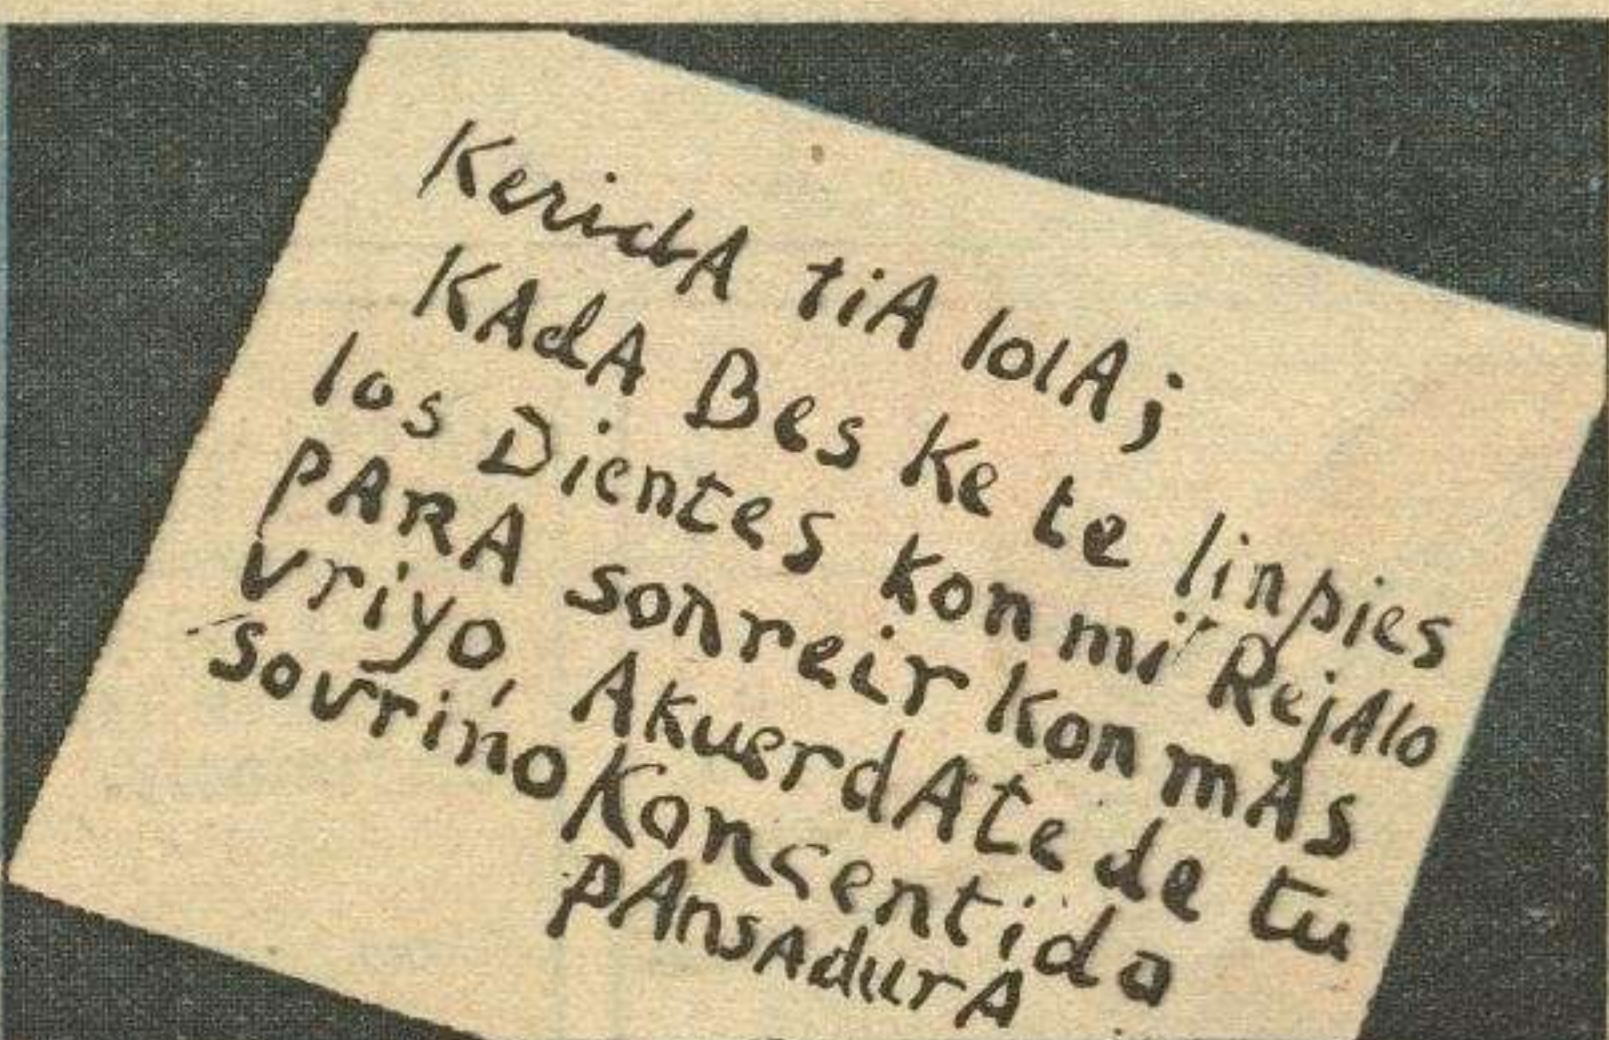 KeridA tiA lolA;
KAdA Bes Ke te linpies
los Dientes kon mi RejAlo
PARA sonreir kon mAs
vriyo, AkuerdAte de tu
sovrino Koncentido
pAnsAdurA